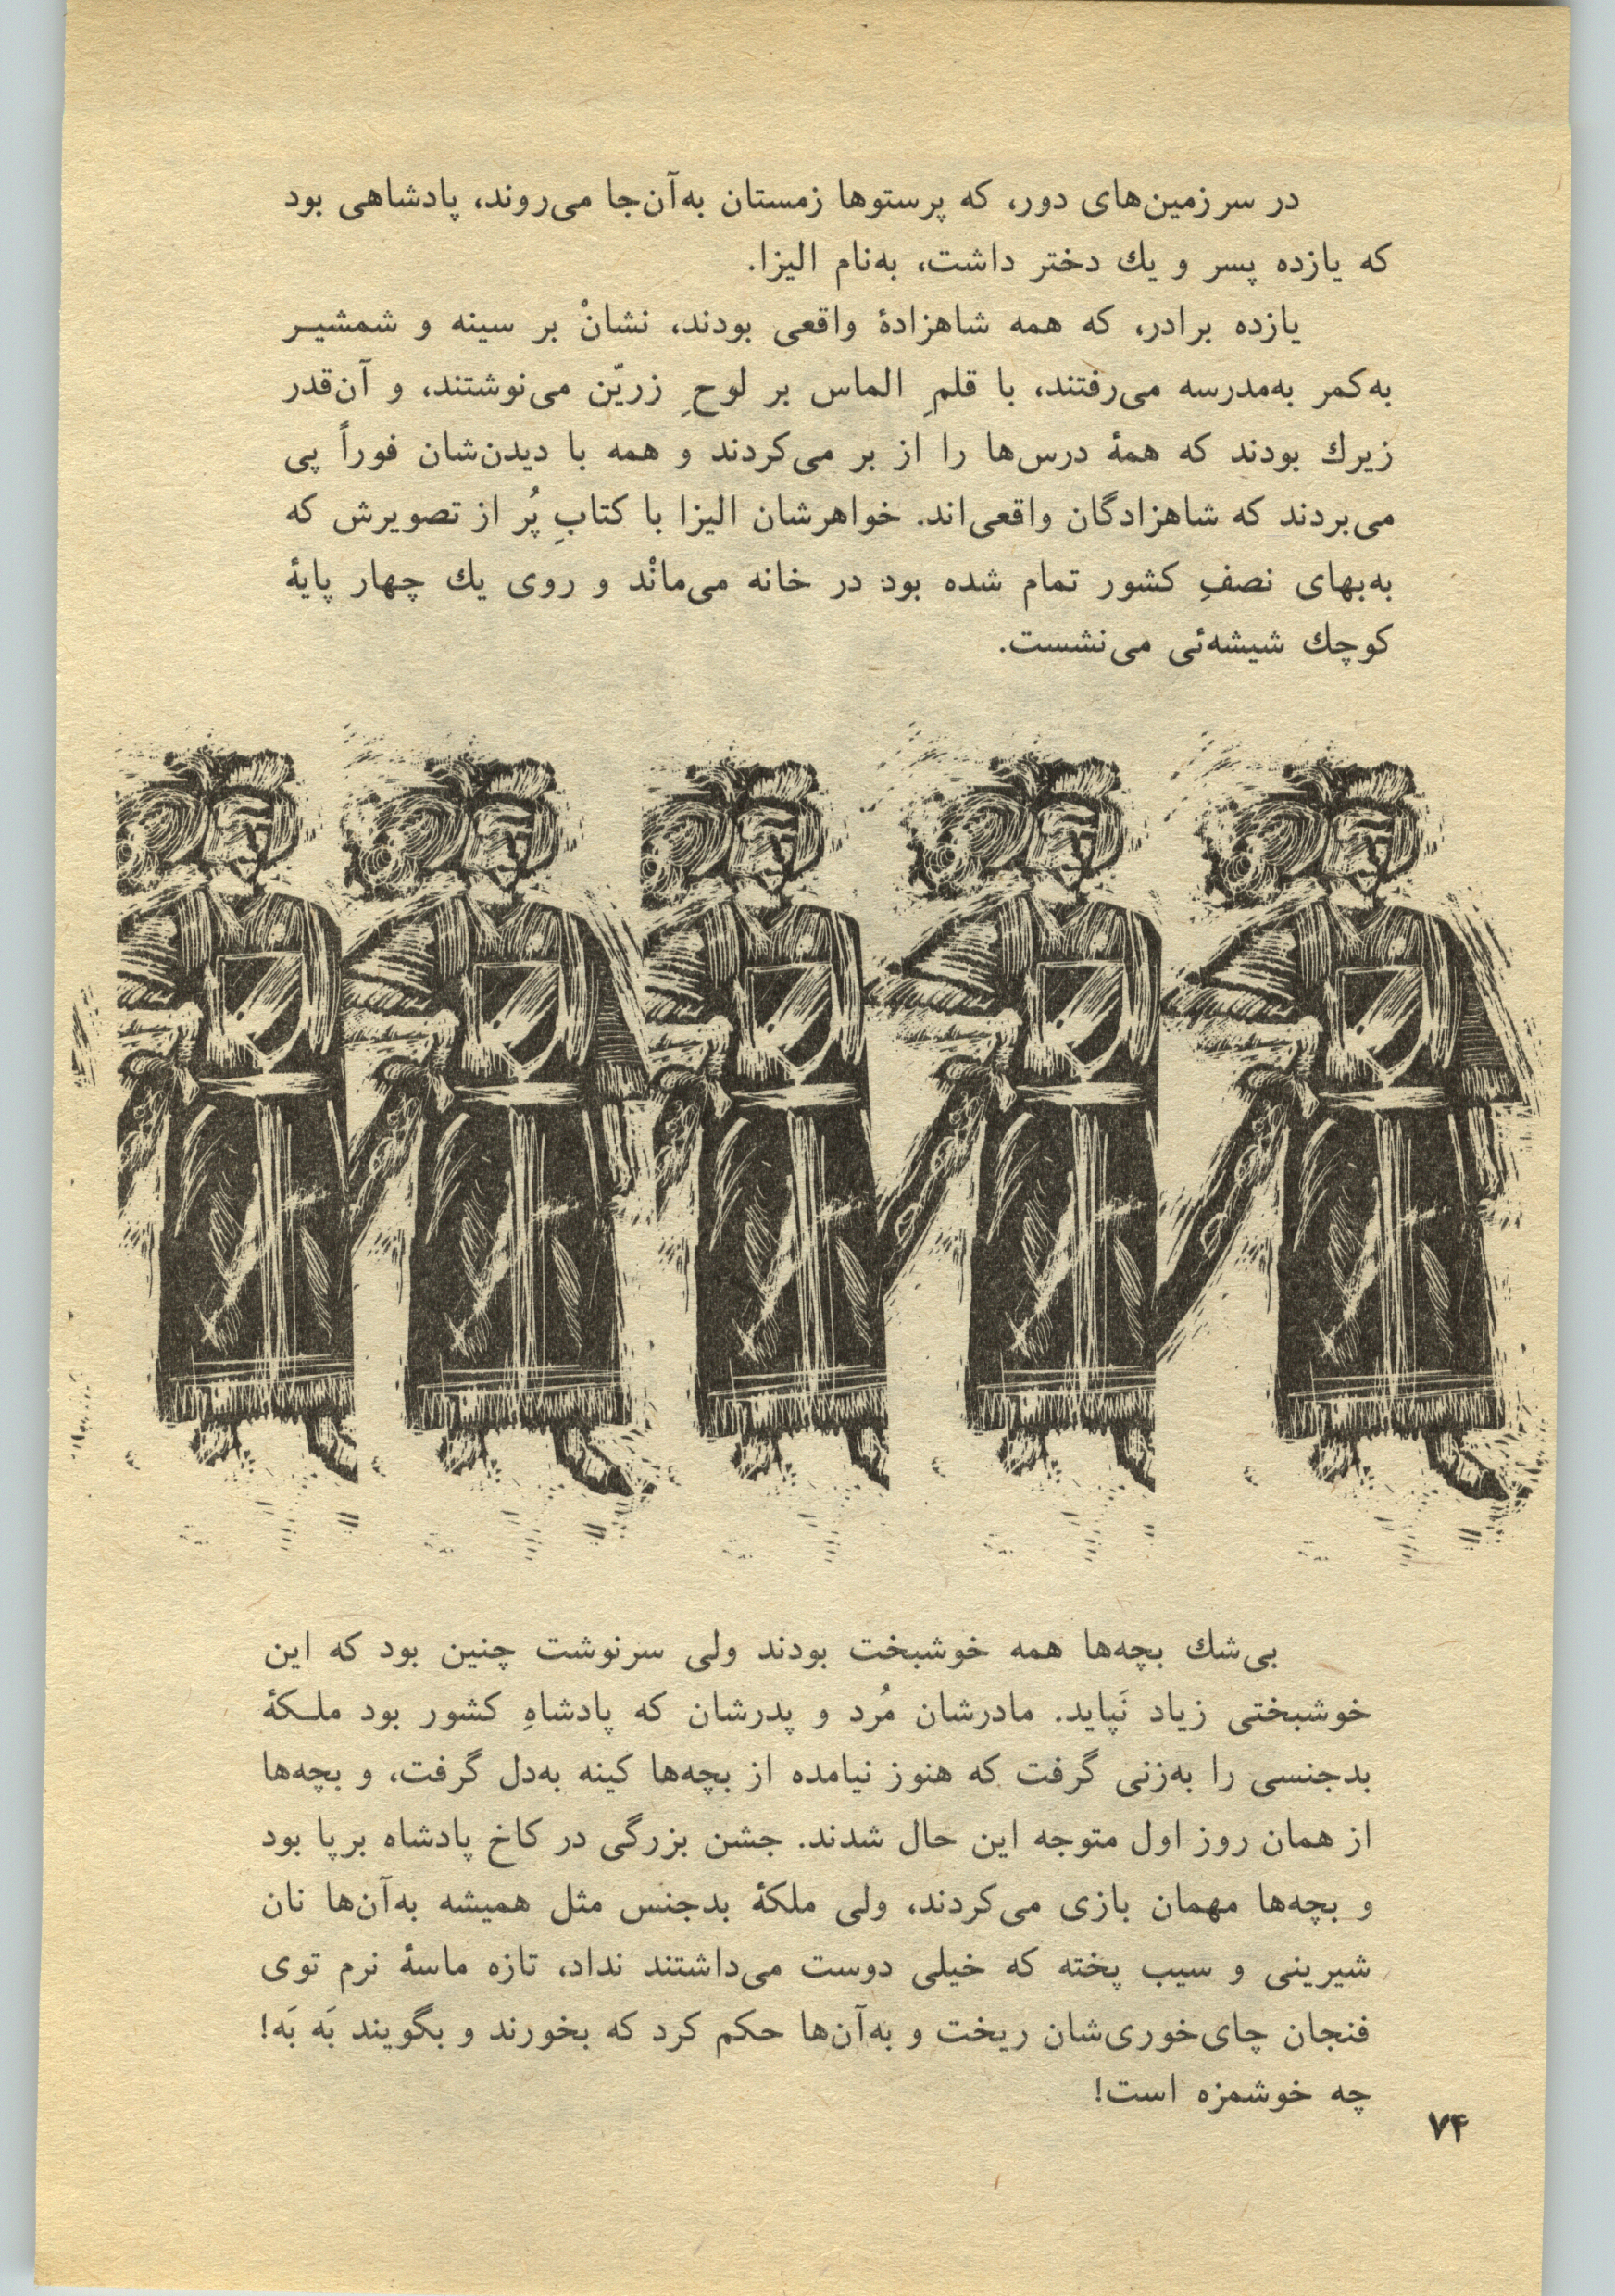 در سرزمین‌های دور، که پرستوها زمستان به‌آن‌جا می‌روند، پادشاهی بود
که یازده پسر و یك دختر داشت، به‌نام الیزا.
یازده برادر، که همه شاهزادۀ واقعی بودند، نشانْ بر سینه و شمشیـر
به‌کمر به‌مدرسه می‌رفتند، با قلمِ الماس بر لوحِ زریّن می‌نوشتند، و آن‌قدر
زیرك بودند که همۀ درس‌ها را از بر می‌کردند و همه با دیدن‌شان فوراً پی
می‌بردند که شاهزادگان واقعی‌اند. خواهرشان الیزا با کتابِ پُر از تصویرش که
به‌بهای نصفِ کشور تمام شده بود در خانه می‌مانْد و روی یك چهار پایۀ
کوچك شیشه‌ئی می‌نشست.
بی‌شك بچه‌ها همه خوشبخت بودند ولی سرنوشت چنین بود که این
خوشبختی زیاد نَپاید. مادرشان مُرد و پدرشان که پادشاهِ کشور بود ملـکۀ
بدجنسی را به‌زنی گرفت که هنوز نیامده از بچه‌ها کینه به‌دل گرفت، و بچه‌ها
از همان روز اول متوجه این حال شدند. جشن بزرگی در کاخ پادشاه برپا بود
و بچه‌ها مهمان بازی می‌کردند، ولی ملکۀ بدجنس مثل همیشه به‌آن‌ها نان
شیرینی و سیب پخته که خیلی دوست می‌داشتند نداد، تازه ماسۀ نرم توی
فنجان چای‌خوری‌شان ریخت و به‌آن‌ها حکم کرد که بخورند و بگویند بَه بَه!
چه خوشمزه است!
۷۴